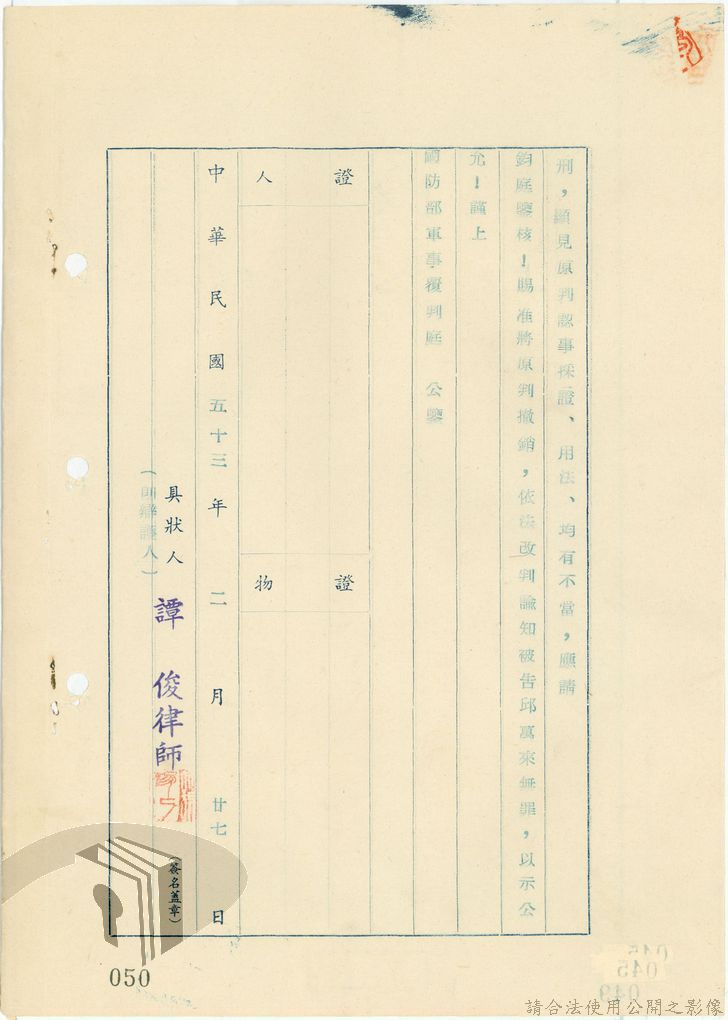 刑，顯見原判認事採證、用法、均有不當，應請
鈞庭鑒核！賜准將原判撤銷，依法改判諭知被告邱萬來無罪，以示公
允！謹上
國防部軍事覆判庭　公鑒
證人
證物
中華民國五十三年二月廿七日
具狀人　譚俊律師
（即辯護人）
（簽名蓋章）
050
045
045
049
請合法使用公開之影像